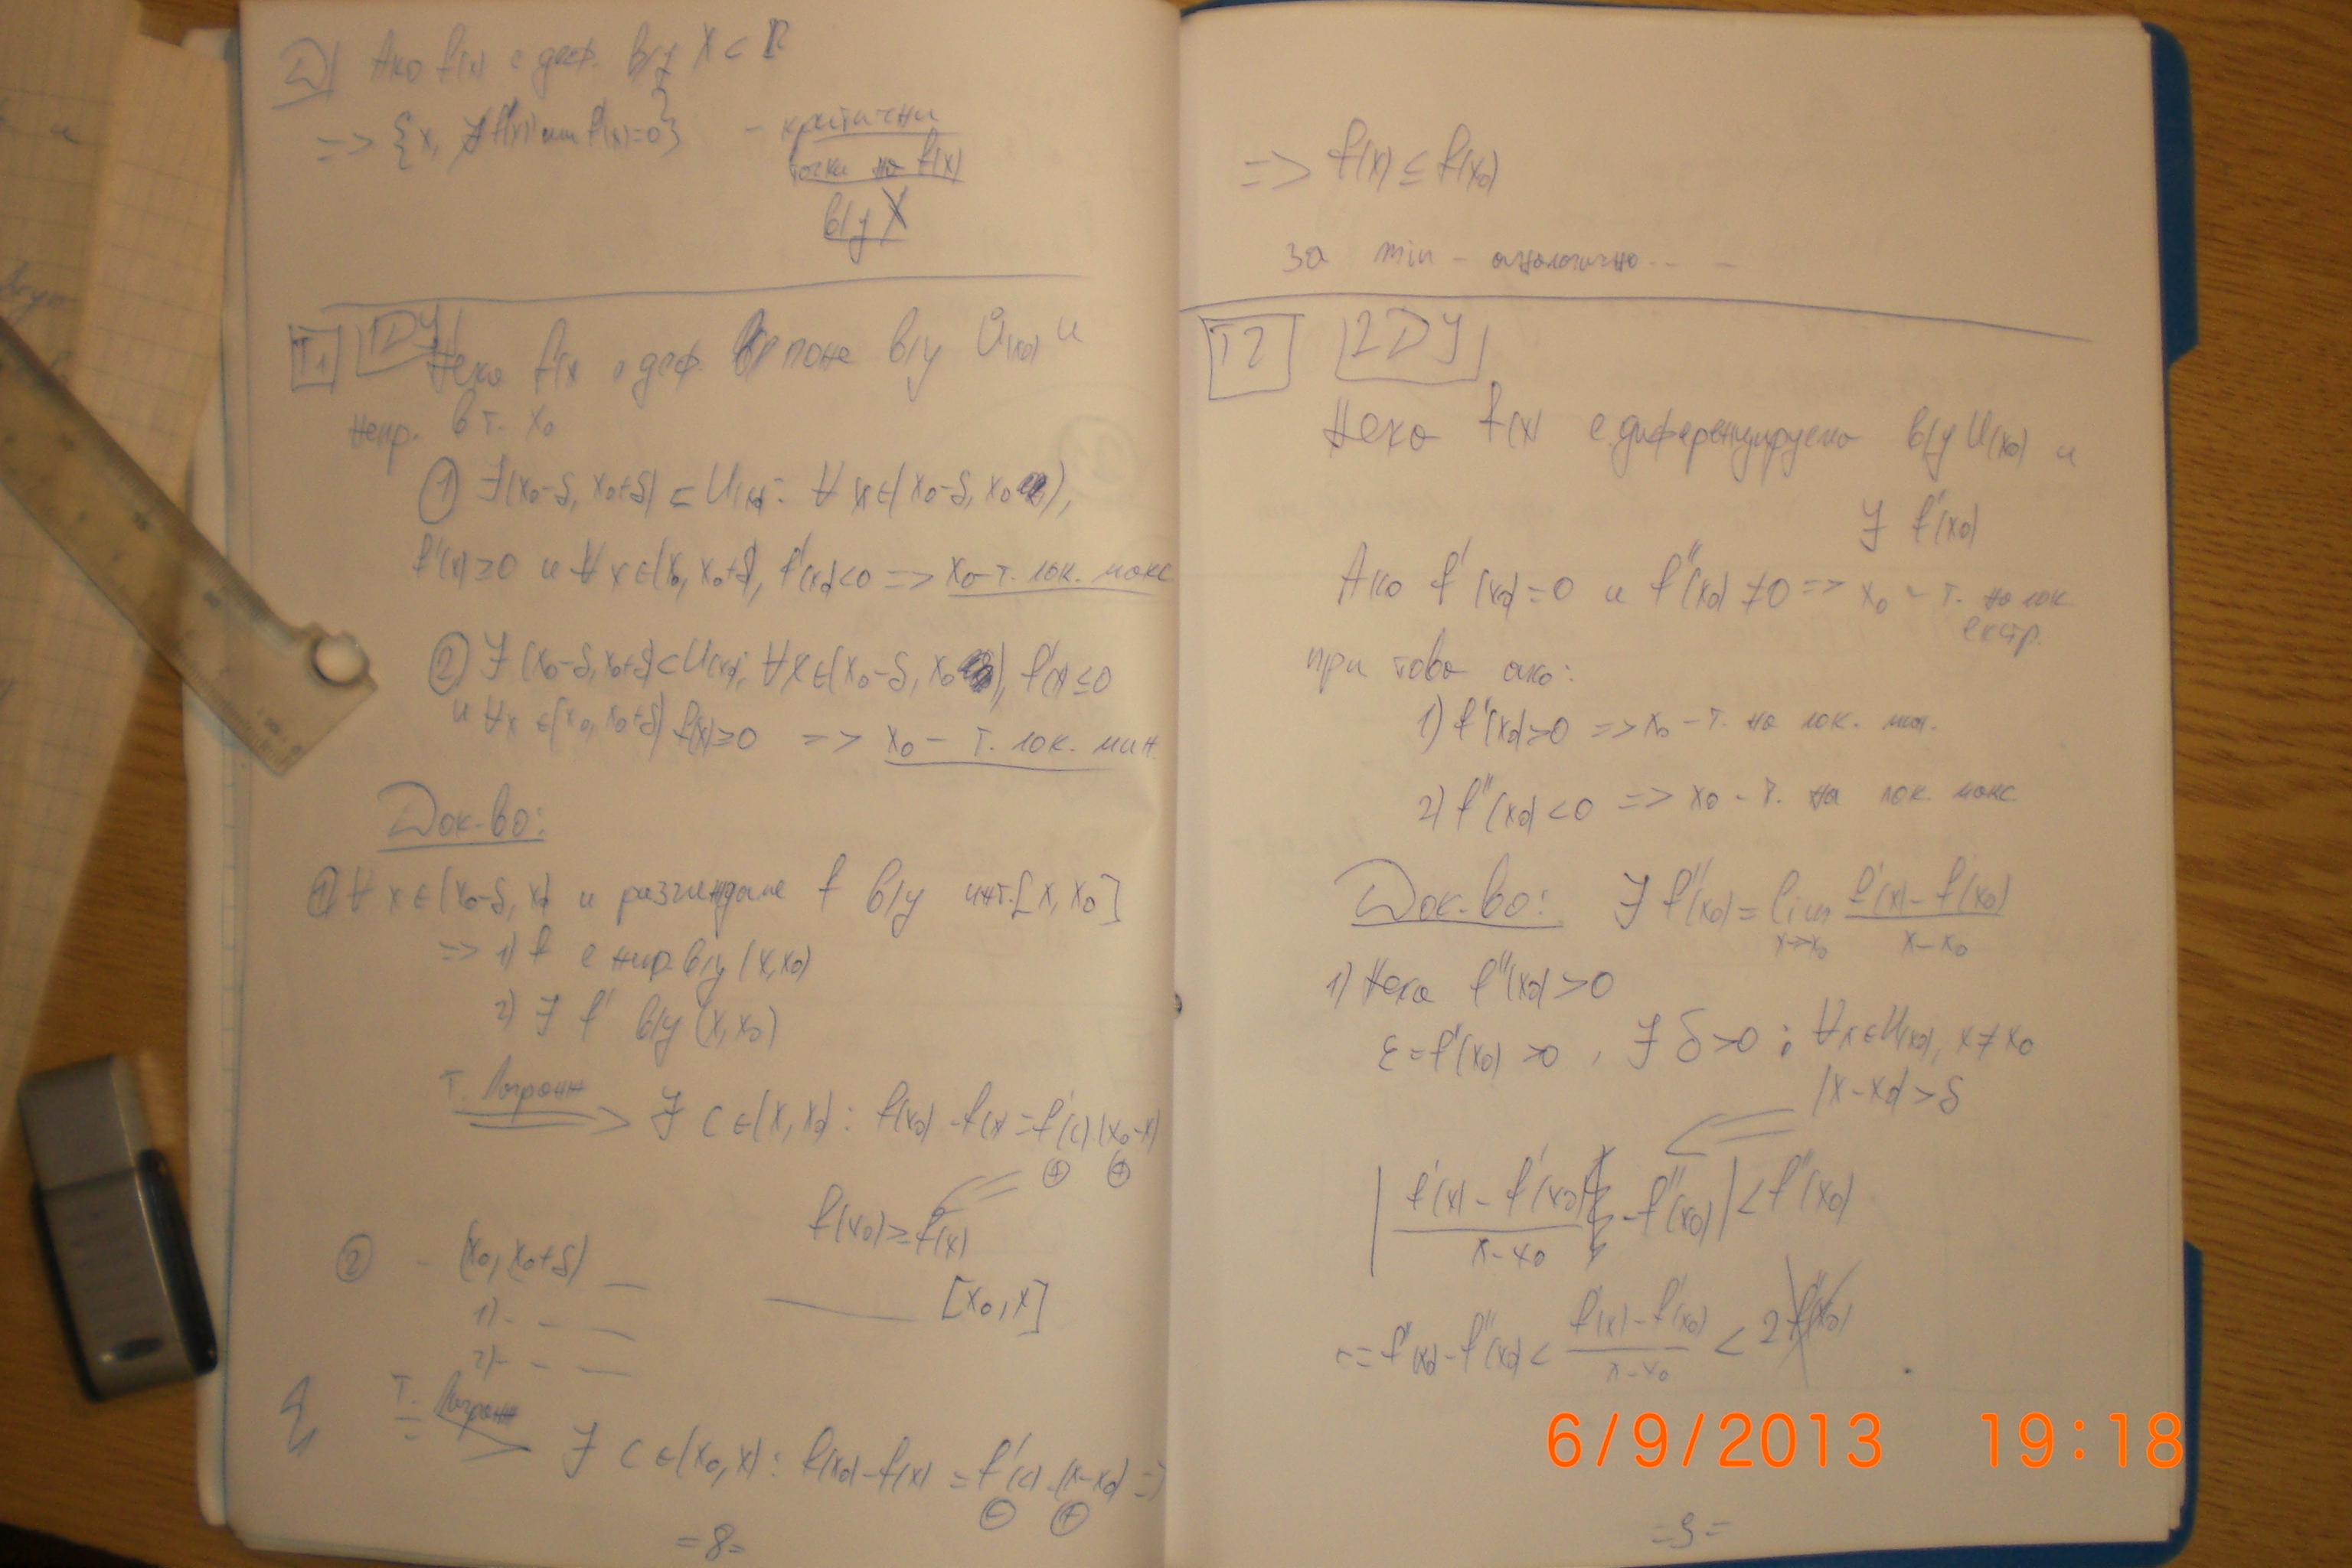 Д) Ако f(x) е деф. в/у X ⊂ R
=> {x, ∄ f'(x) или f'(x)=0} - критични
точки на f(x)
в/у X
T1 1ДУ Нека f(x) е деф. поне в/у Ů(x₀) и
непр. в т. x₀
① ∃(x₀-δ, x₀+δ) ⊂ U(x₀): ∀ x∈(x₀-δ, x₀),
f'(x)≥0 и ∀ x∈(x₀, x₀+δ), f'(x)<0 => x₀-т. лок. макс
② ∃ (x₀-δ, x₀+δ)⊂U(x₀); ∀x∈(x₀-δ, x₀), f'(x)≤0
и ∀x ∈(x₀, x₀+δ) f'(x)≥0 => x₀ - т. лок. мин.
Док-во:
① ∀ x∈(x₀-δ, x₀) и разглеждаме f в/у инт.[x, x₀]
=> 1) f е непр. в/у (x, x₀)
2) ∃ f' в/у (x, x₀)
т. Лагранж => ∃ c∈(x, x₀): f(x₀)-f(x)=f'(c)(x₀-x)
⊕ ⊕
f(x₀)≥f(x)
② - (x₀, x₀+δ) — —— [x₀, x]
1) - - —
2) - - —
т. Лагранж => ∃ c∈(x₀, x): f(x₀)-f(x) = f'(c).(x-x₀) =>
⊖ ⊕
=8=
=> f(x) ≤ f(x₀)
за min - аналогично...-
T2 2ДУ
Нека f(x) е диференцируема в/у U(x₀) и
∃ f'(x₀)
Ако f'(x₀)=0 и f''(x₀)≠0 => x₀ - т. на лок.
екстр.
при това ако:
1) f''(x₀)>0 => x₀ - т. на лок. мин.
2) f''(x₀)<0 => x₀ - т. на лок. макс
Док-во: ∃ f''(x₀) = lim x→x₀ f'(x) - f(x₀) / x-x₀
1) Нека f''(x₀)>0
ε=f'(x₀)>0, ∃ δ>0 : ∀x∈U(x₀), x≠x₀
|x-x₀|>δ
| f'(x) - f'(x₀) / x-x₀ - f''(x₀) | < f''(x₀)
f''(x₀)-f''(x₀) < f'(x)-f'(x₀) / x-x₀ < 2f''(x₀)
6/9/2013 19:18
=9=